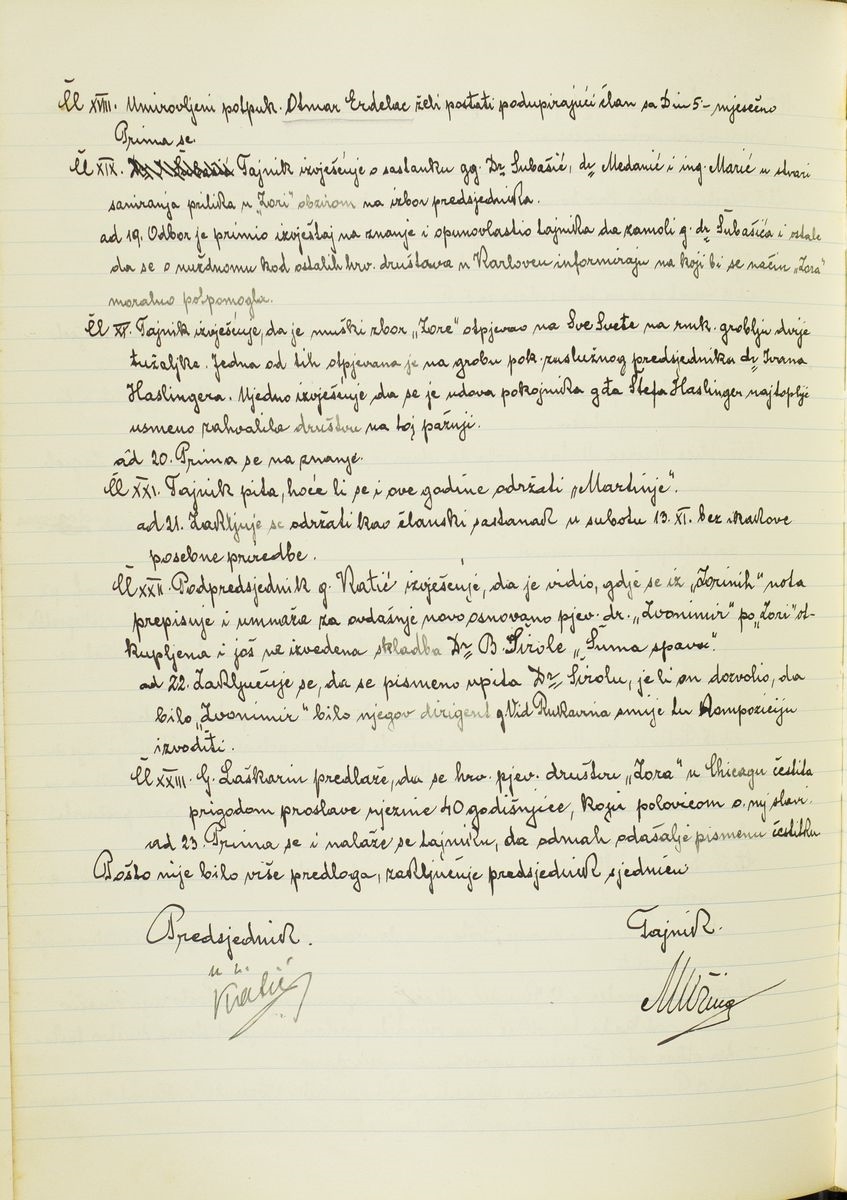 Čl XVIII. Umirovljeni potpuk. Otmar Erdelac želi postati podupirajući član sa Din 5- mjesečno
Prima se.
Čl XIX. Tajnik izvješćuje o sastanku gg. Dr Šubašić, dr Medanić i ing. Marić u stvari
saniranja prilika u „Zori" obzirom na izbor predsjednika.
ad 19. Odbor je primio izvještaj na znanje i opunovlastio tajnika da zamoli g. dr Šubašića i ostale
da se o nuždnomu kod ostalih hrv. društava u Karlovcu informiraju na koji bi se način „Zora"
moralno potpomogla.
Čl XX. Tajnik izvješćuje, da je muški zbor „Zore" otpjevao na Sve Svete na rmk. groblju dvije
tužaljke. Jedna od tih otpjevana je na grobu pok. zaslužnog predsjednika dr Ivana
Haslingera. Ujedno izvješćuje da se je udova pokojnika gđa Štefa Haslinger najtoplije
usmeno zahvalila društvu na toj pažnji.
ad 20. Prima se na znanje.
Čl XXI. Tajnik pita, hoće li se i ove godine održati „Martinje".
ad 21. Zaključuje se održati kao članski sastanak u subotu 13. XI. bez ikakove
posebne priredbe.
Čl XXII. Podpredsjednik g. Katić izvješćuje, da je vidio, gdje se iz „Zorinih" nota
prepisuje i umnaža za ovdašnje novo osnovano pjev. dr. „Zvonimir" po „Zori" ot-
kupljena i još ne izvedena skladba Dr B. Širole „Šuma spava".
ad 22. Zaključuje se, da se pismeno upita Dr Širolu, je li on dozvolio, da
bilo „Zvonimir" bilo njegov dirigent g. Vid Rukavina smije tu kompoziciju
izvoditi.
Čl XXIII. G. Laškarin predlaže, da se hrv. pjev. društvu „Zora" u Chicagu čestita
prigodom proslave njezine 40 godišnjice, koju polovicom o. mj slavi.
ad 23. Prima se i nalaže se tajniku, da odmah odašalje pismenu čestitku
Pošto nije bilo više predloga, zaključuje predsjednik sjednicu
Predsjednik. Tajnik.
Katić